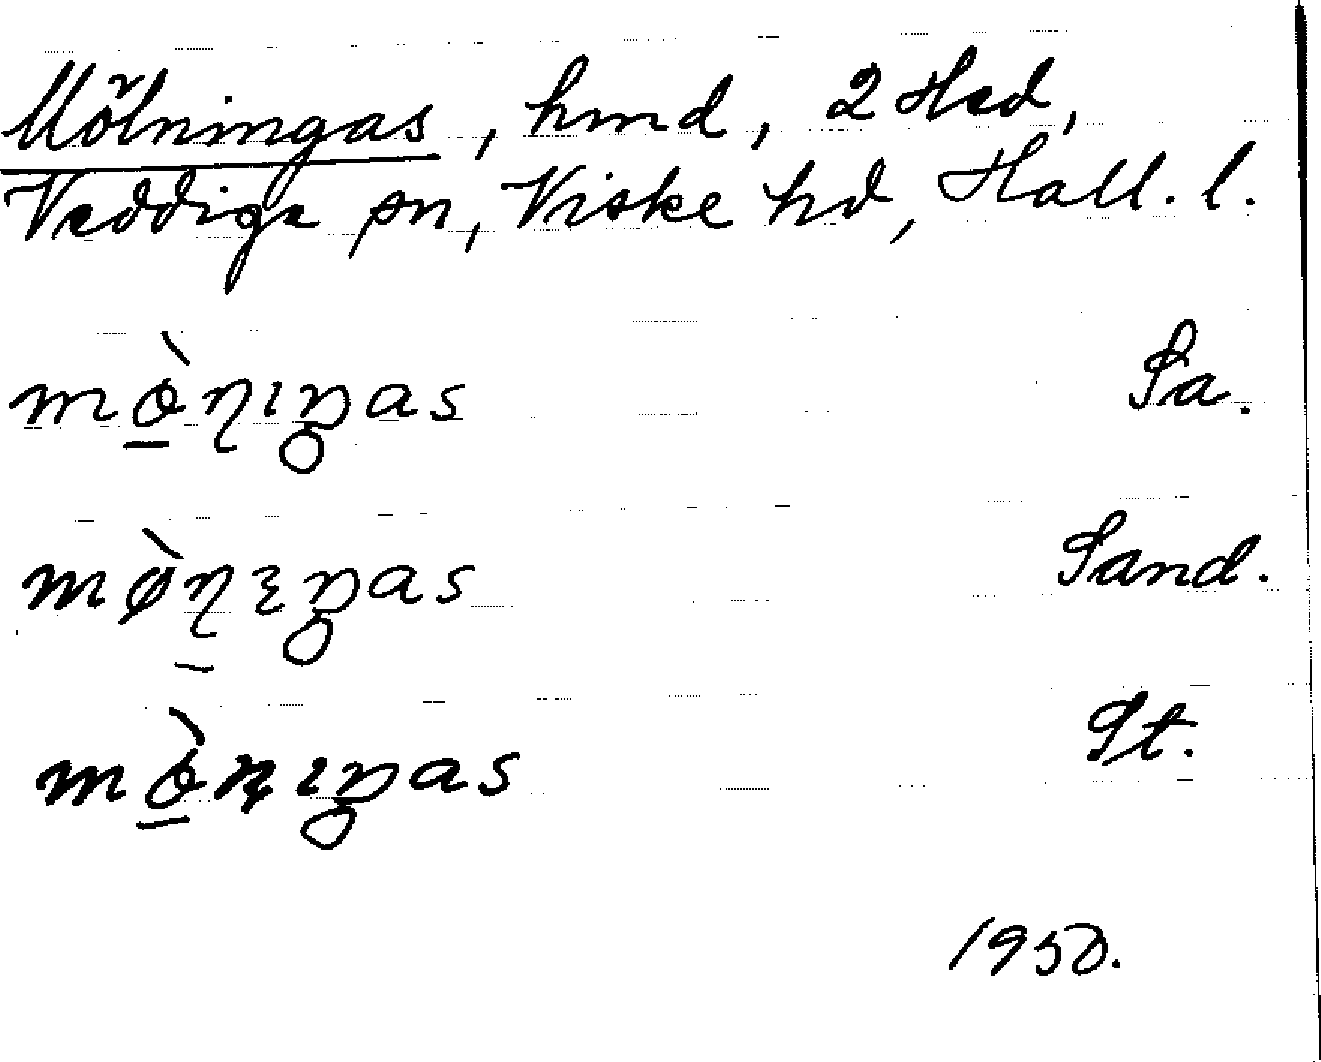 Mölningas, hmd, 2 Hed,
Veddige sn, Viske hd, Hall. l.
mø̀ɳɪŋas Sa.
mø̀ɳɛŋas Sand.
mø̀ɳɪŋas St.
1950.